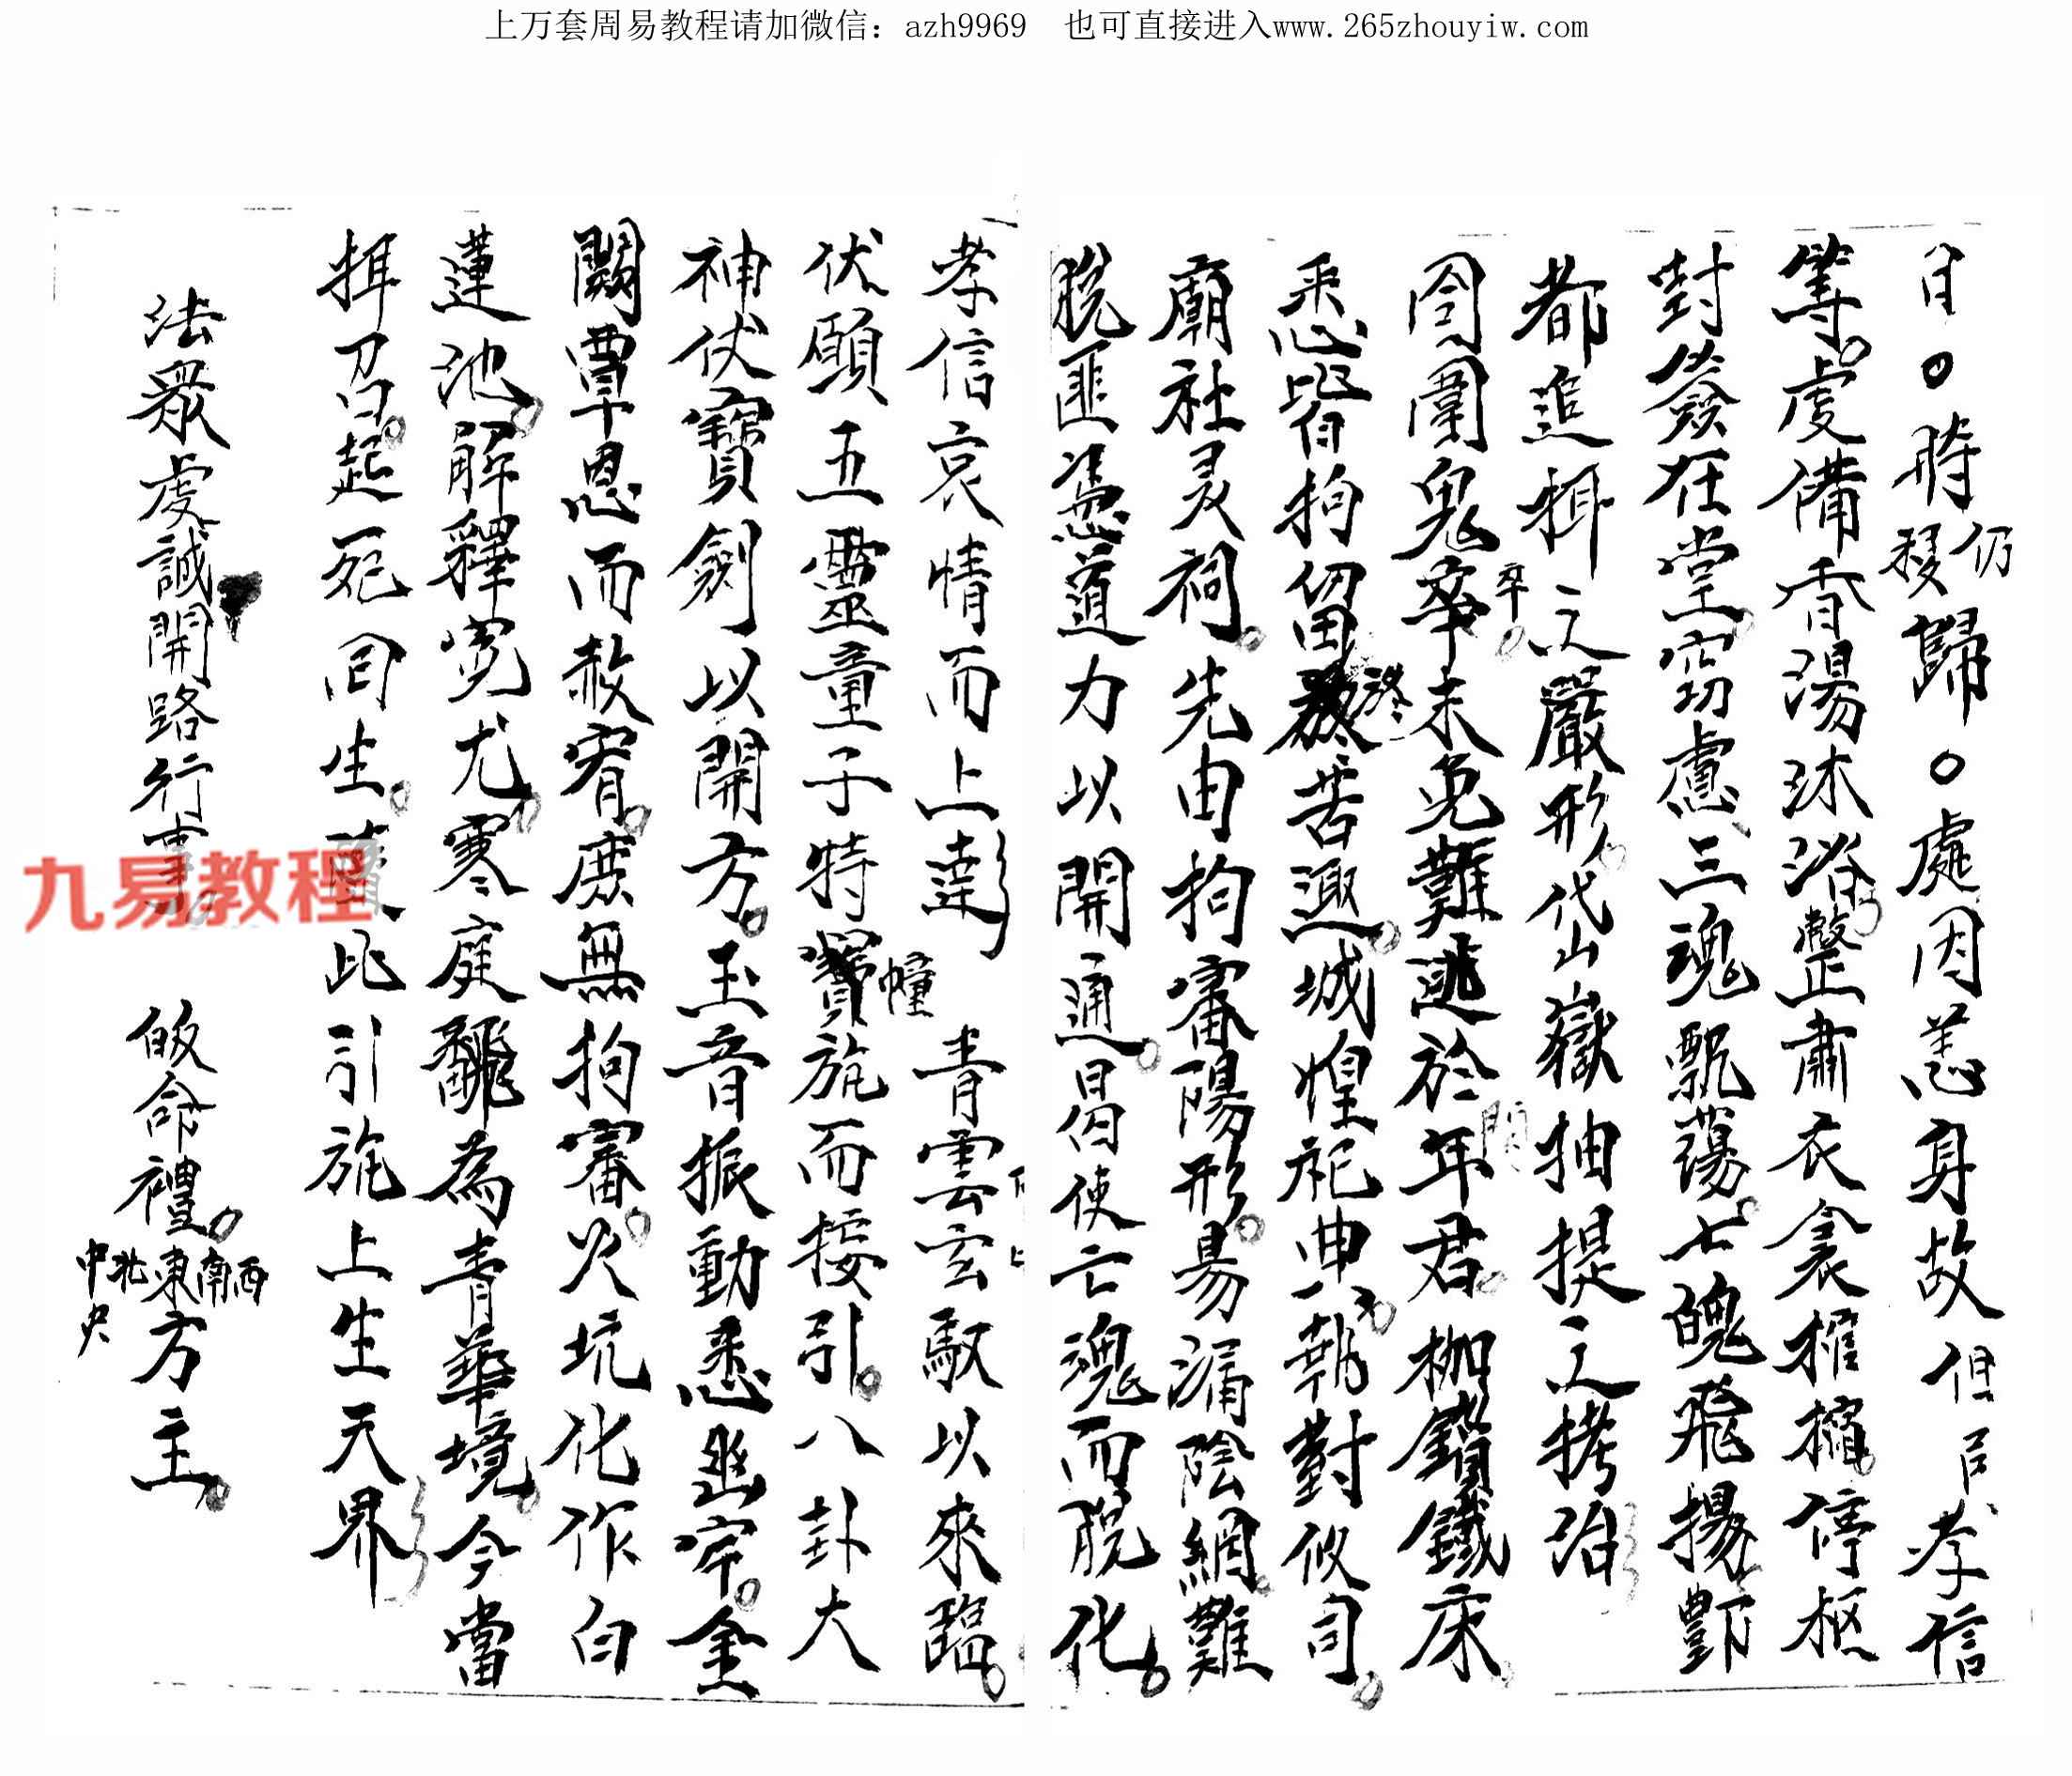 上万套周易教程请加微信：azh9969 也可直接进入www.265zhouyiw.com
日。時仍移歸。處因恙身故但戶孝信
等。虔備香湯沐浴整肅衣衾推搐停柩
封簽在堂。窃慮三魂飄蕩。七魄飛揚酆
都追捐之嚴形。代山嶽抽提之拷治
囹圄鬼卒未免難逃於年君。枷鎖鐵床
悉皆拘留終苦趣。城煌祀典。執對攸司。
廟社灵祠。先由拘審陽形。易漏陰網。難
脫匪憑道力以開通。曷使亡魂而脫化。
孝信哀情而上達 青雲玄馭以來臨。
伏願五靈童子特幢旄而接引。八卦大
神伏寶劍以開方。玉音振動悉幽牢。金
闕覃恩而赦宥。庶無拘審。火坑化作白
蓮池。解釋寃尤。寒庭翻為青華境。今當
捐召。起死回生。此引旄上生天界
法眾虔誠開路行事。 皈命禮。西南東北中央方主。
九易教程